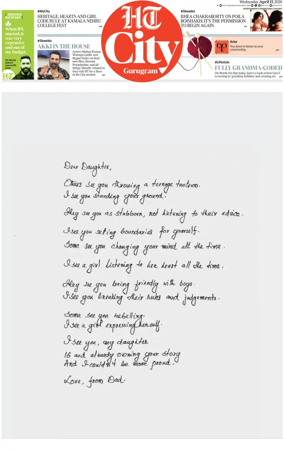 Wednesday, April 15, 2026
#MyCity
HERITAGE, HEARTS AND GIRL
CODE RULE AT KAMALA NEHRU
COLLEGE FEST
#Showbiz
AKKI IN THE HOUSE
HT
City
Gurugram
#Showbiz
RHEA CHAKRABORTY ON POILA
BOISHAKH: IT'S THE PERMISSION
TO BEGIN AGAIN
#Lifestyle
FULLY GRANDMA-CODED
Dear Daughter,
Others see you throwing a teenage tantrum.
I see you standing your ground.
They see you as stubborn, not listening to their advice.
I see you setting boundaries for yourself.
Some see you changing your mind all the time.
I see a girl listening to her heart all the time.
They see you being friendly with boys.
I see you breaking their rules and judgements.
Some see you rebelling.
I see a girl expressing herself.
I see you, my daughter.
16 and already owning your story
And I couldn't be more proud.
Love, from Dad.